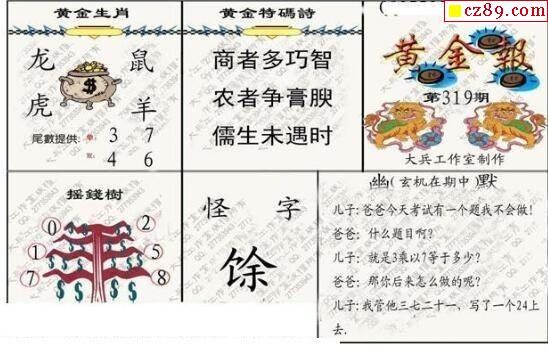 cz89.com
黄金生肖
龙
鼠
虎
羊
尾數提供:
單:
3 7
双:
4 6
黄金特碼詩
商者多巧智
农者争膏腴
儒生未遇时
黄金報
第319期
大兵工作室制作
摇錢樹
0
2
1
5
7
8
怪 字
馀
幽(玄机在期中)默
儿子:爸爸今天考试有一个题我不会做!
爸爸: 什么题目啊?
儿子: 就是3乘以7等于多少?
爸爸: 那你后来怎么做的呢?
儿子:我管他三七二十一，写了一个24上
去.